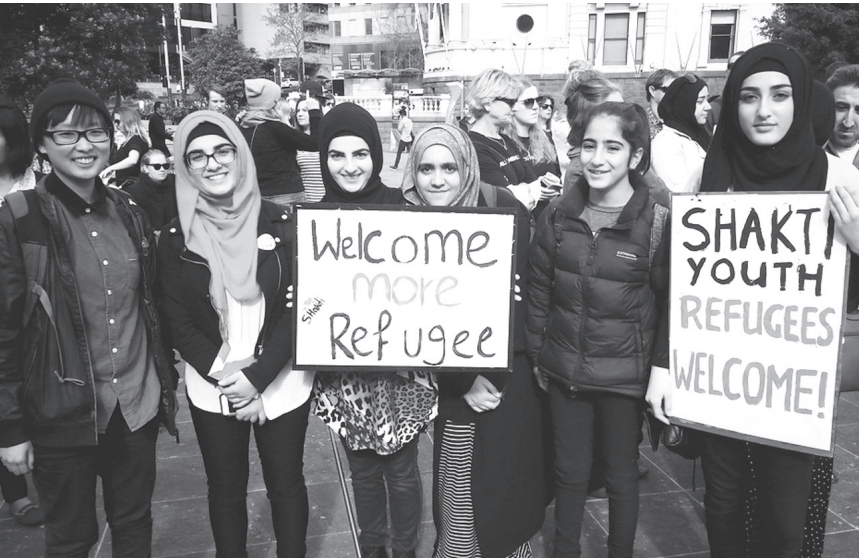 Welcome
more
Refugee
Shakti
SHAKTI
YOUTH
REFUGEES
WELCOME!